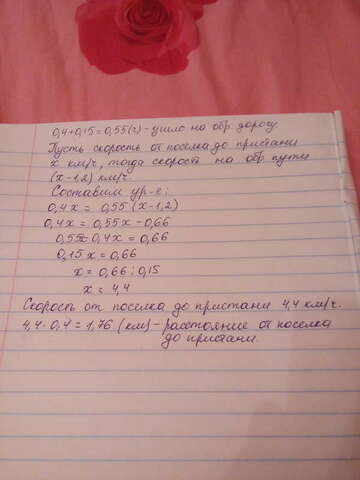 0,4+0,15=0,55(г) - ушло на обр дорогу
Пусть скорость от поселка до пристани
x км/ч, тогда скорост на обр пути
(x-1,2) км/ч
Составим ур-е:
0,4x = 0,55(x-1,2)
0,4x = 0,55x - 0,66
0,55x-0,4x = 0,66
0,15x = 0,66
x = 0,66 : 0,15
x = 4,4
Скорость от поселка до пристани 4,4 км/ч.
4,4 · 0,4 = 1,76 (км) - расстояние от поселка
до пристани.